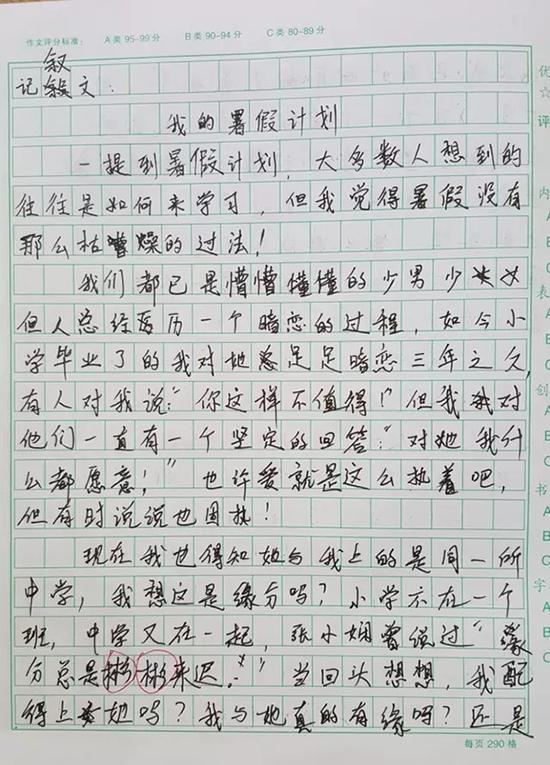 作文评分标准： A类 95-99分 B类 90-94分 C类 80-89分
叙
记 文：
我的暑假计划
一提到暑假计划，大多数人想到的
往往是如何来学习，但我觉得暑假没有
那么枯燥的过法！
我们都已是懵懵懂懂的少男少女
但人总经历一个暗恋的过程，如今小
学毕业了的我对她足足暗恋三年之久，
有人对我说：“你这样不值得！”但我对
他们一直有一个坚定的回答：“对她我什
么都愿意！”也许爱就是这么执着吧，
但有时说说也固执！
现在我也得知她与我上的是同一所
中学，我想这是缘分吗？小学不在一个
班，中学又在一起，张小娴曾说过“缘
分总是 来迟。”当回头想想，我配
得上她吗？我与她真的有缘吗？还是
每页 290 格
优
☆
评
内
A
B
C
表
A
B
C
创
A
B
C
书
A
B
C
字
A
B
C